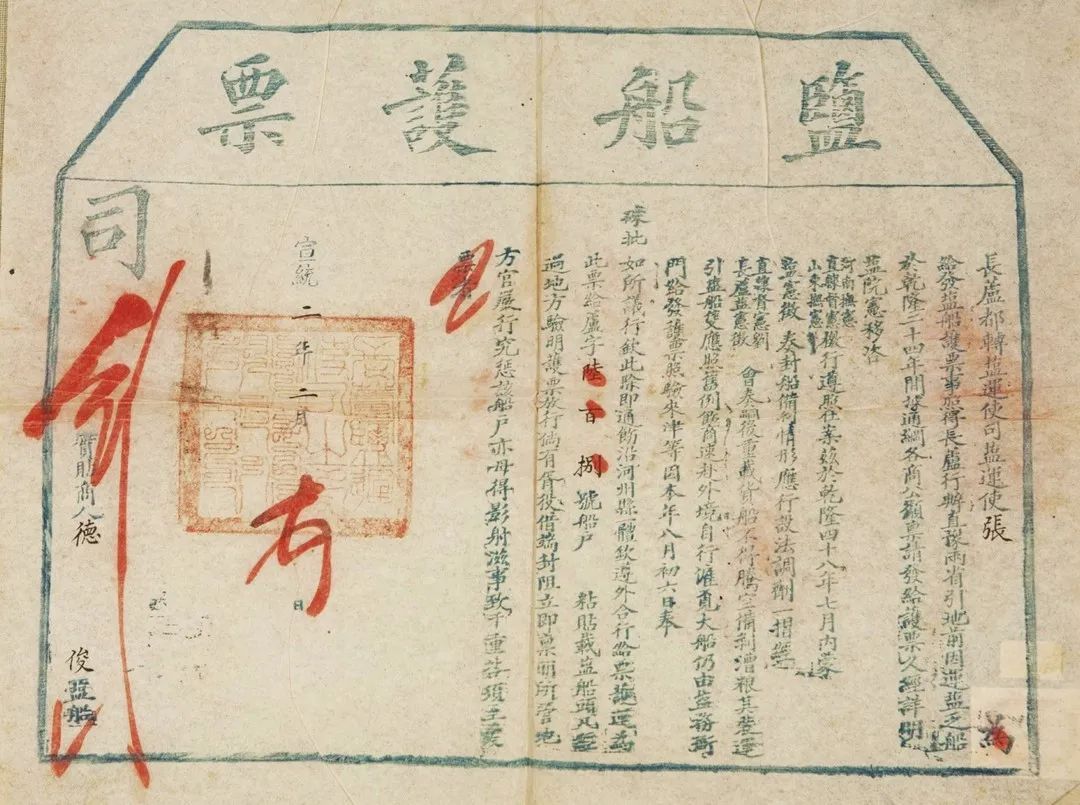 鹽船護票
長蘆都轉鹽運使司鹽運使張
給發鹽船護票事照得長蘆行辦直豫兩省引地前因運鹽之船
於乾隆二十四年間據通綱各商公籲票請發給護票久經詳明
鹽院憲移咨
河南撫憲
直隸督憲
山東撫憲
檄行遵照在案茲於乾隆四十八年七月內蒙
鹽憲徵 奏封船備剝情形應行設法調劑一摺
直隸督憲劉
長蘆鹽憲徵
會奏嗣後重載貨船不得騰空備剝漕糧其裝運
引鹽船隻應照舊例飭商速赴外境自行雇覓大船仍由鹽務衙
門給發護票照驗來津等因本年八月初六日奉
硃批
如所議行欽此除即通飭沿河州縣一體欽遵外合行給票護運為
此票給蘆字陸百捌號船戶 粘貼載鹽船頭凡經
過地方驗明護票放行倘有胥役借端封阻立即稟明所管地
方官嚴行究懲該船戶亦毋得影射滋事致干重咎須至票
票者
宣統二年二月 日
司
實貼商人德 俊鹽船